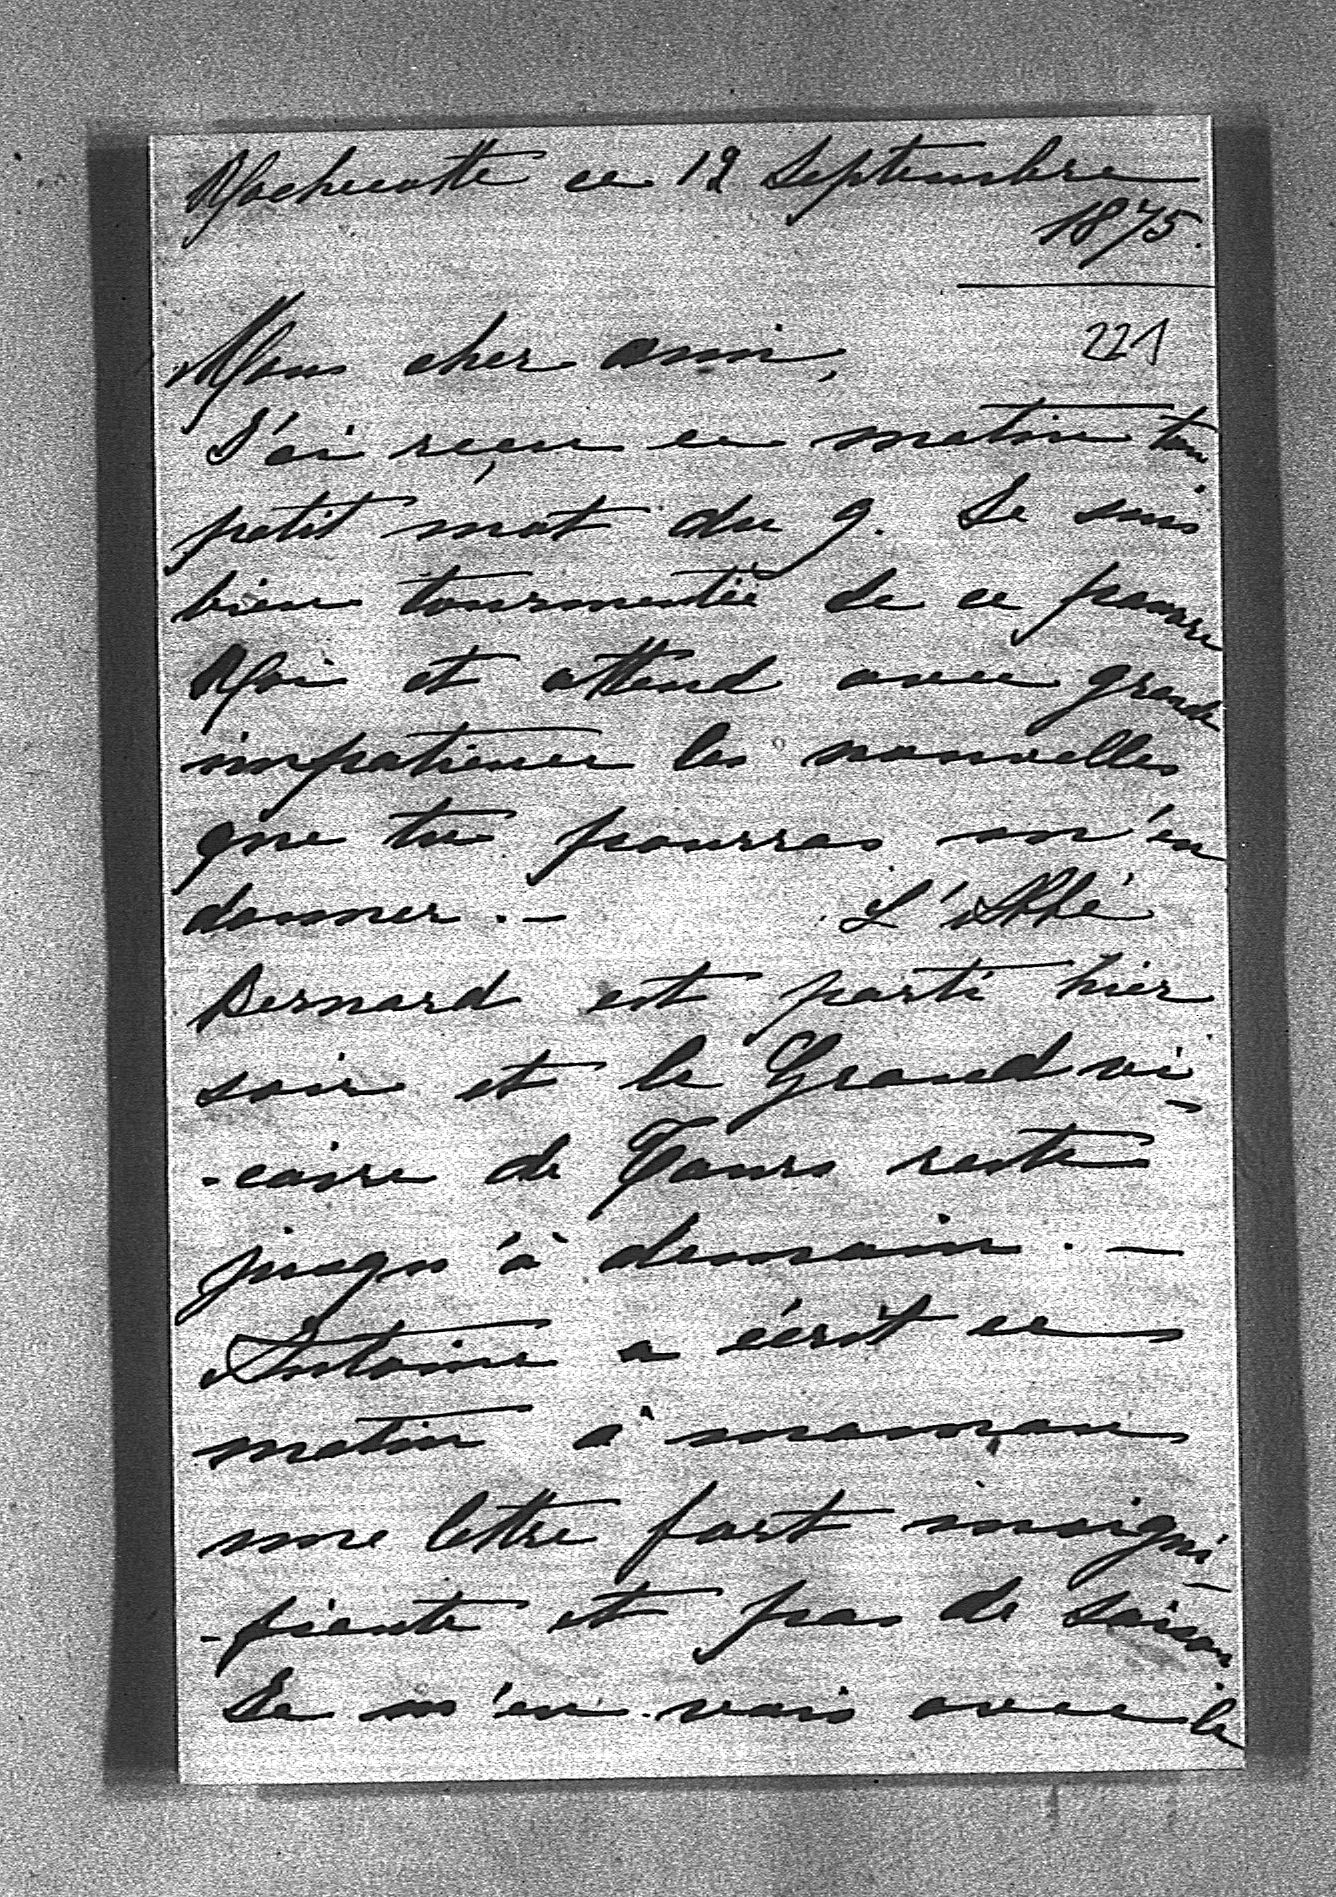 Rochecotte ce 12 Septembre
1875.
221
Mon cher ami,
J'ai reçeu ce matin ton
petit mot du 9. Je suis
bien tourmentée de ce pauvre
Roi et attend avec grande
impatience les nouvelles
que tu pourras m'en
donner. — L'Abbé
Bernard est parti hier
soir et le Grand vi-
-caire de Tours reste
jusqu'à demain. —
Antoine a écrit ce
matin à maman
une lettre fort insigni-
-fiante et pas de saison
Je m'en vais avec le